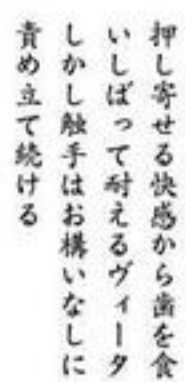 押し寄せる快感から歯を食
いしばって耐えるヴィータ
しかし触手はお構いなしに
責め立て続ける